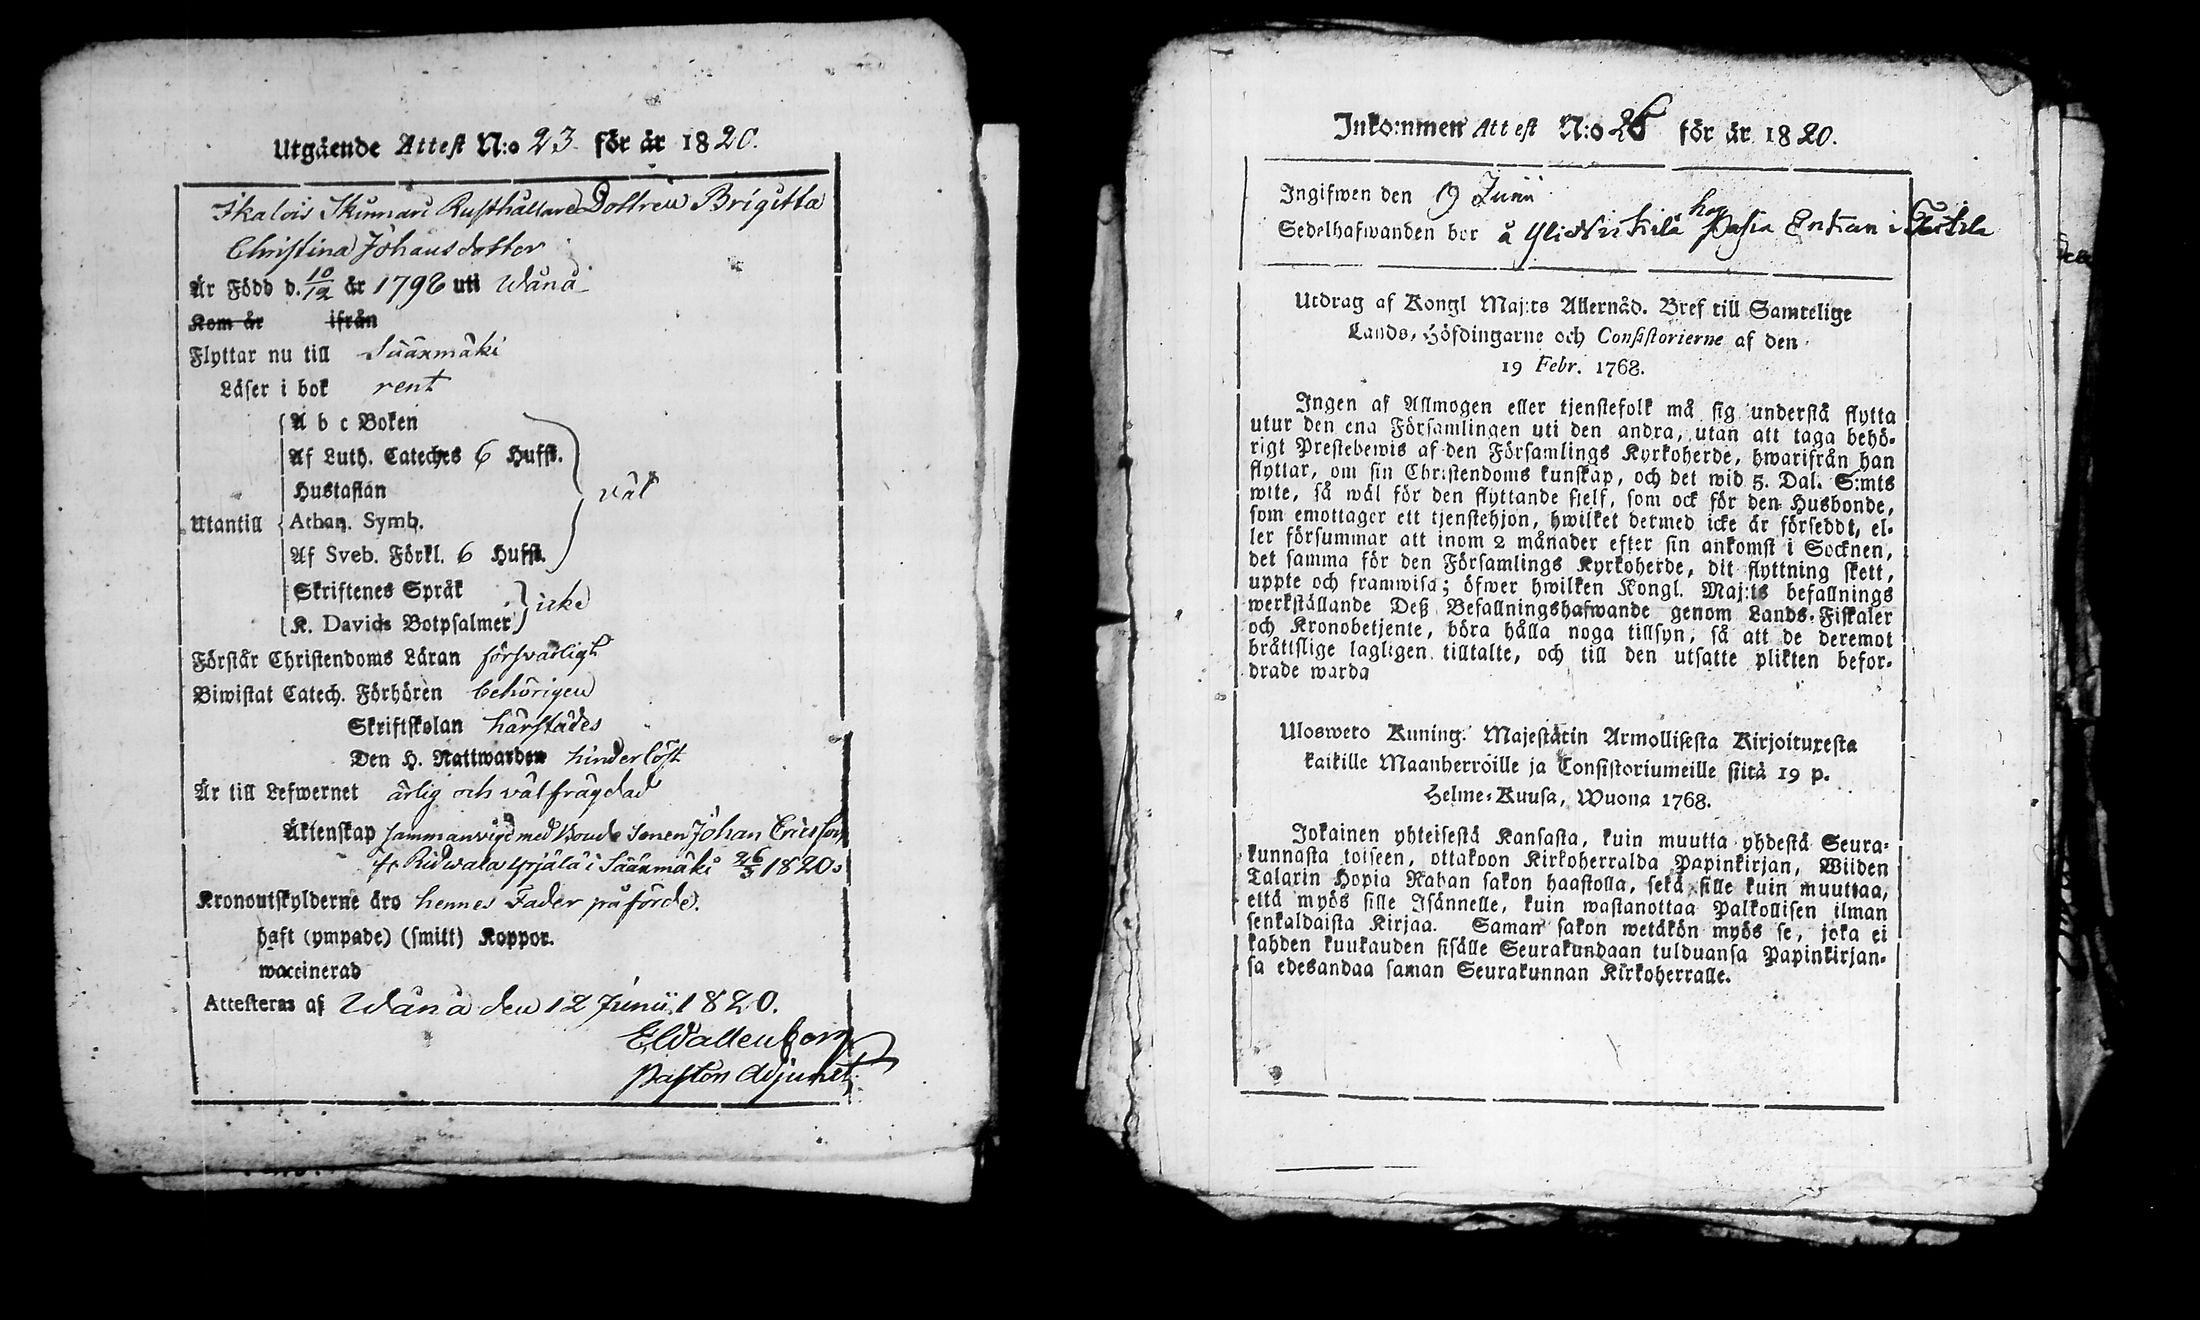 Utgående Attest N:o 23 för år 1820.
Ikalois Skinnari Rusthållare Dottren Brigitta
Christina Johansdotter
Är Född d. 10/12 år 1798 uti Wånå
Kom år ifrån
Flyttar nu till Sääxmäki
Läser i bok rent
Utantill
A b c Boken
Af Luth. Cateches 6 Hufst.
Hustaflan
Athan. Symb.
Af Sveb. Förkl. 6 Hufst.
väl
Skriftenes Språk
K. Davids Botpsalmer
icke
Förstår Christendoms Läran försvarligt
Biwistat Catech. Förhören behörigen
Skriftskolan härstädes
Den H. Nattwarden hinderlöst
Är till Lefwernet ärlig och välfrägdad
Äktenskap sammanvigd med Bonde Sonen Johan Ericsson
fr Ridwala Yrjälä i Sääxmäki 26/3 1820.
Kronoutskylderne äro hennes Fader påförde.
haft (ympade) (smitt) Koppor.
waccinerad
Attesteras af Wånå den 12 Junii 1820.
E Wallenborg
Pastors Adjunct.
Inkommen Attest N:o 26 för år 1820.
Ingifwen den 19 Junii
Sedelhafwanden bor å Yli hos i
Utdrag af Kongl Maj:ts Allernåd. Bref till Samtelige
Lands-Höfdingarne och Consistorierne af den
19 Febr. 1768.
Ingen af Allmogen eller tjenstefolk må sig understå flytta
utur den ena Församlingen uti den andra, utan att taga behö-
rigt Prestebewis af den Församlings Kyrkoherde, hwarifrån han
flyttar, om sin Christendoms kunskap, och det wid 5. Dal. S:mts
wite, så wäl för den flyttande sjelf, som ock för den Husbonde,
som emottager ett tjenstehjon, hwilket dermed icke är försedt, el-
ler försummar att inom 2 månader efter sin ankomst i Socknen,
det samma för den Församlings Kyrkoherde, dit flyttning skett,
uppte och framwisa; öfwer hwilken Kongl. Maj:ts befallnings
werkställande Deß Befallningshafwande genom Lands-Fiskaler
och Kronobetjente, böra hålla noga tillsyn, så att de deremot
bråttslige lagligen tilltalte, och till den utsatte plikten befor-
drade warda
Ulosweto Kuning. Majestätin Armollisesta Kirjoituxesta
kaikille Maanherroille ja Consistoriumeille siitä 19 p.
Helme-Kuusa, Wuona 1768.
Jokainen yhteisestä Kansasta, kuin muutta yhdestä Seura-
kunnasta toiseen, ottakoon Kirkoherralda Papinkirjan, Wiiden
Talarin Hopia Rahan sakon haastolla, sekä sille kuin muuttaa,
että myös sille Isännelle, kuin wastanottaa Palkollisen ilman
senkaldaista Kirjaa. Saman sakon wetäkön myös se, joka ei
kahden kuukauden sisälle Seurakundaan tulduansa Papinkirjan-
sa edesandaa saman Seurakunnan Kirkoherralle.